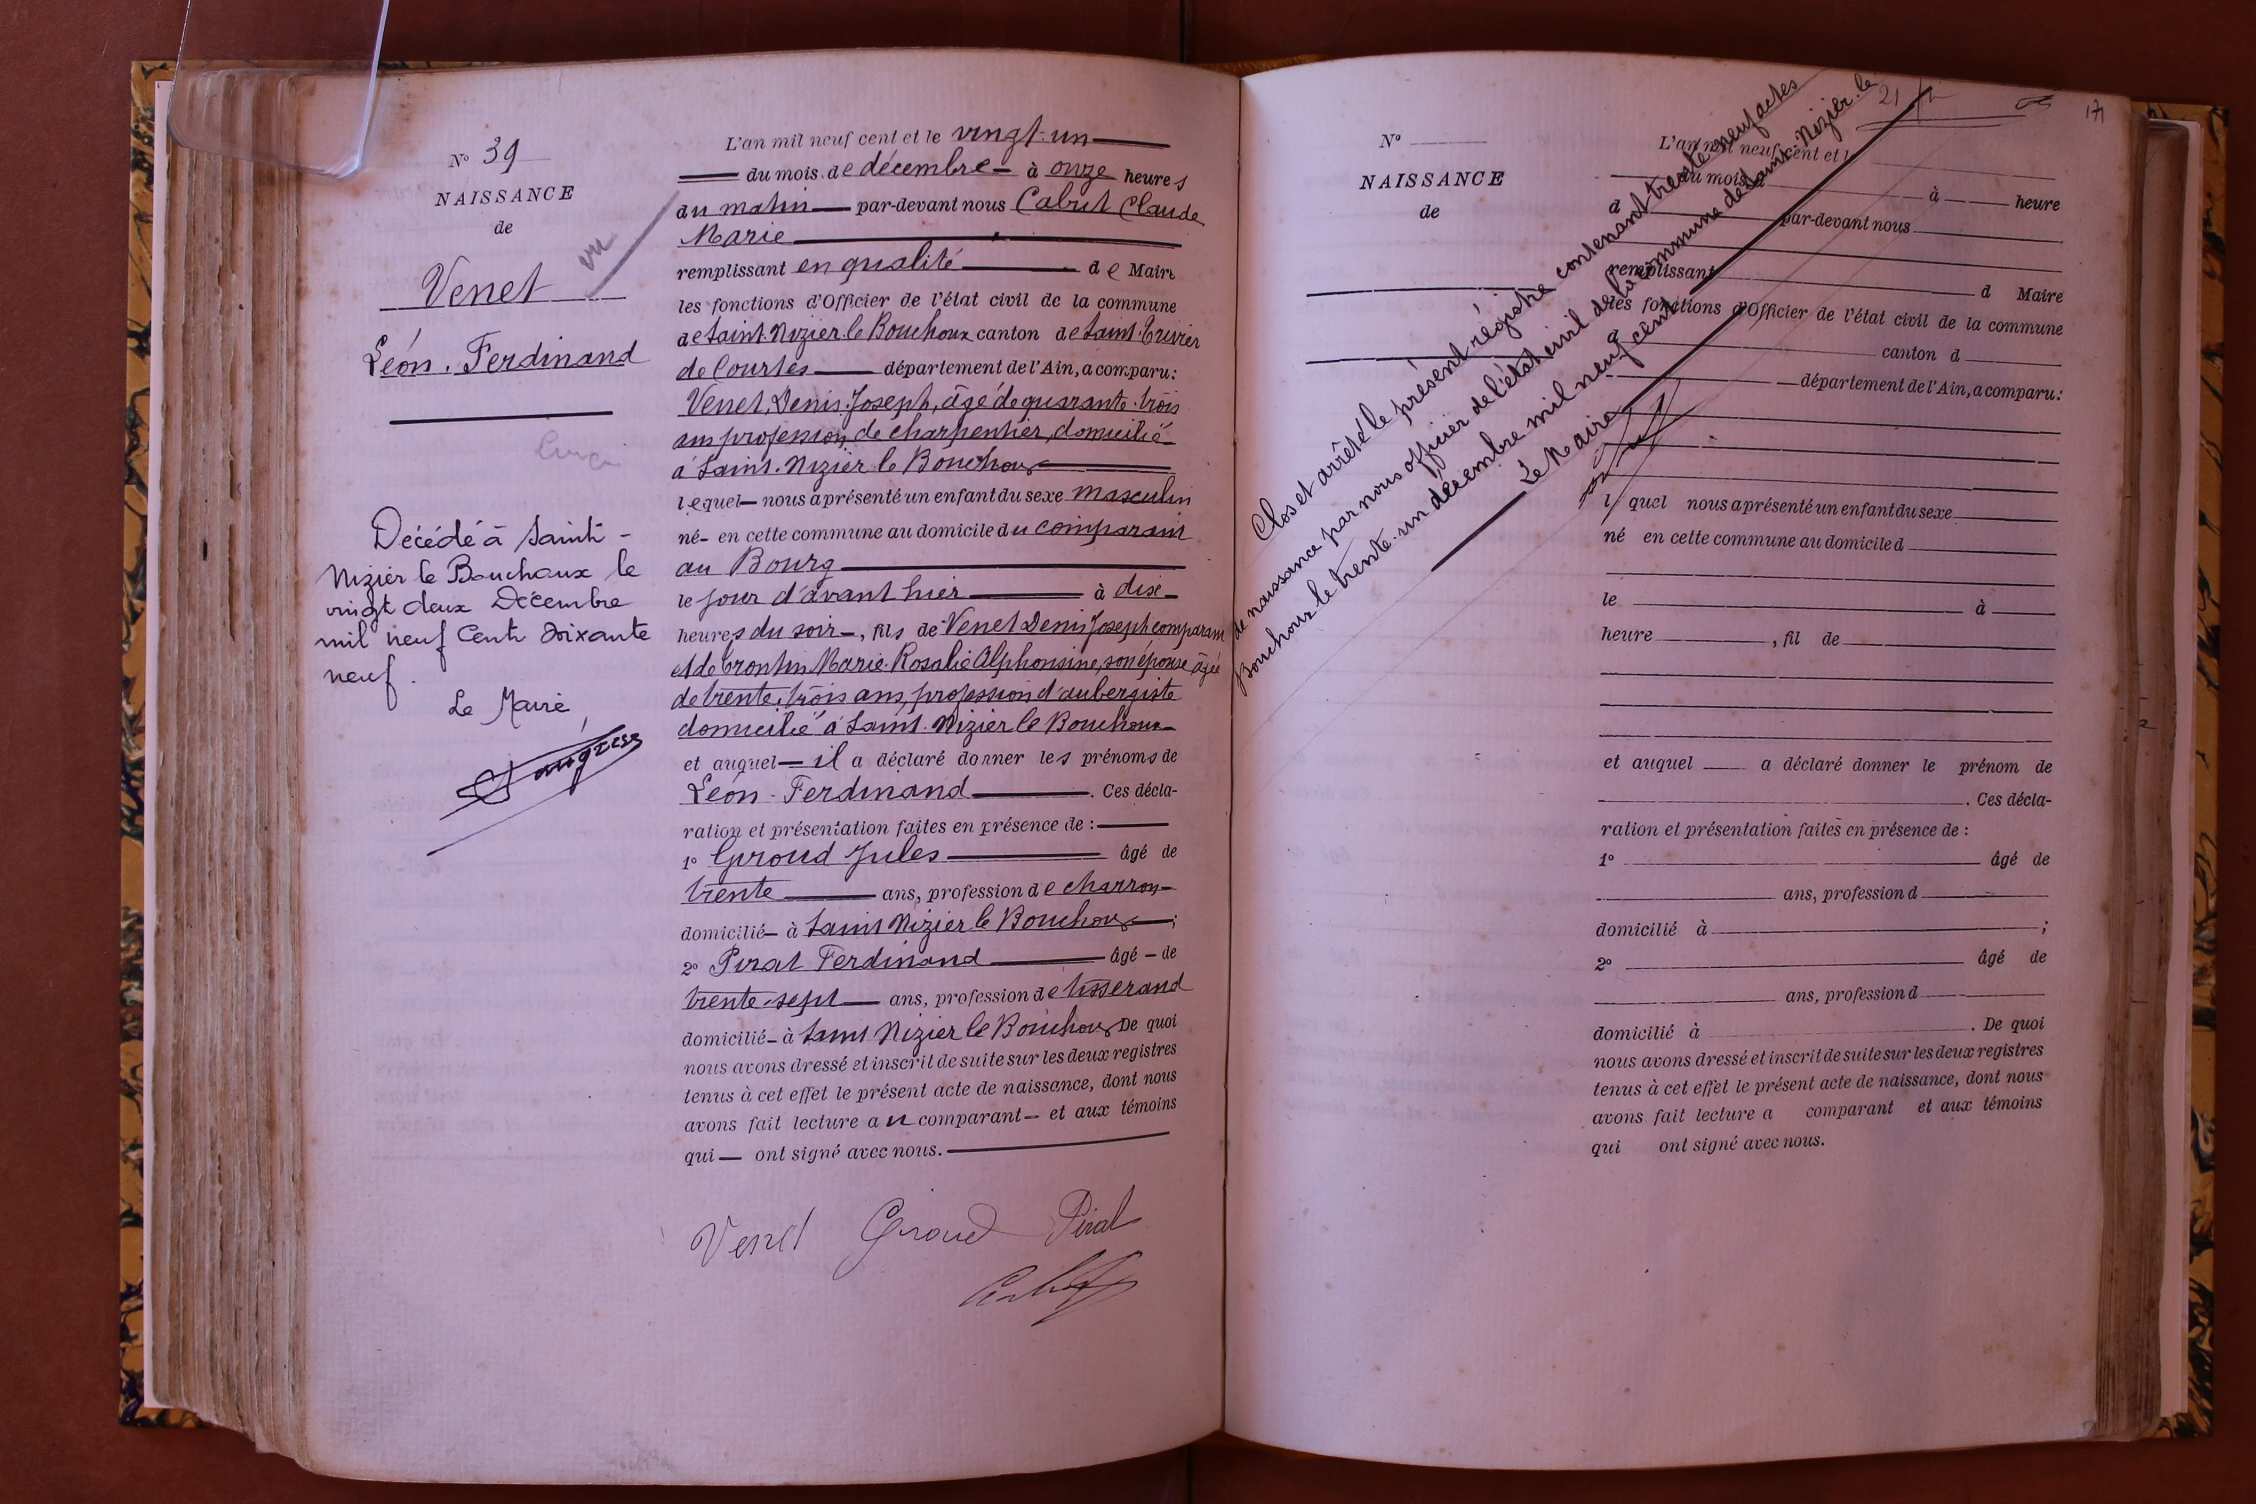 N° 39
NAISSANCE
de
Venet
Léon. Ferdinand
Décédé à Saint-
Nizier le Bouchoux le
vingt deux Décembre
mil neuf Cent soixante
neuf.
Le Maire,
L'an mil neuf cent et le vingt-un
du mois de décembre à onze heures
du matin par-devant nous Cabut Claude
Marie
remplissant en qualité de Maire
les fonctions d'Officier de l'état civil de la commune
de Saint-Nizier-le-Bouchoux canton de Saint-Trivier
de Courtes département de l'Ain, a comparu:
Venet, Denis-Joseph, âgé de quarante-trois
ans profession de charpentier, domicilié
à Saint-Nizier le Bouchoux
lequel nous a présenté un enfant du sexe masculin
né en cette commune au domicile du comparant
au Bourg
le jour d'avant hier à dix
heures du soir, fils de Venet Denis Joseph comparant
et de Crontin Marie-Rosalie Alphonsine, son épouse âgée
de trente-trois ans, profession d'aubergiste
domicilié à Saint-Nizier le Bouchoux
et auquel il a déclaré donner les prénoms de
Léon-Ferdinand. Ces décla-
ration et présentation faites en présence de :
1° Giroud Jules âgé de
trente ans, profession de charron
domicilié à Saint Nizier le Bouchoux ;
2° Pirat Ferdinand âgé de
trente-sept ans, profession de tisserand
domicilié à Saint Nizier le Bouchoux De quoi
nous avons dressé et inscrit de suite sur les deux registres
tenus à cet effet le présent acte de naissance, dont nous
avons fait lecture au comparant et aux témoins
qui ont signé avec nous.
Venet Giroud Pirat
Cabut
21
171
N°
NAISSANCE
de
L'an mil neuf cent et l
du mois d à heure
d par-devant nous
remplissant d Maire
les fonctions d'Officier de l'état civil de la commune
d canton d
département de l'Ain, a comparu:
l quel nous a présenté un enfant du sexe
né en cette commune au domicile d
le à
heure , fil de
et auquel a déclaré donner le prénom de
. Ces décla-
ration et présentation faites en présence de :
1° âgé de
ans, profession d
domicilié à ;
2° âgé de
ans, profession d
domicilié à . De quoi
nous avons dressé et inscrit de suite sur les deux registres
tenus à cet effet le présent acte de naissance, dont nous
avons fait lecture a comparant et aux témoins
qui ont signé avec nous.
Clos et arrêté le présent régistre contenant trente-neuf actes
de naissance par nous officier de l'état civil de la commune de Saint-Nizier-le
Bouchoux le trente-un décembre mil neuf cent
Le Maire